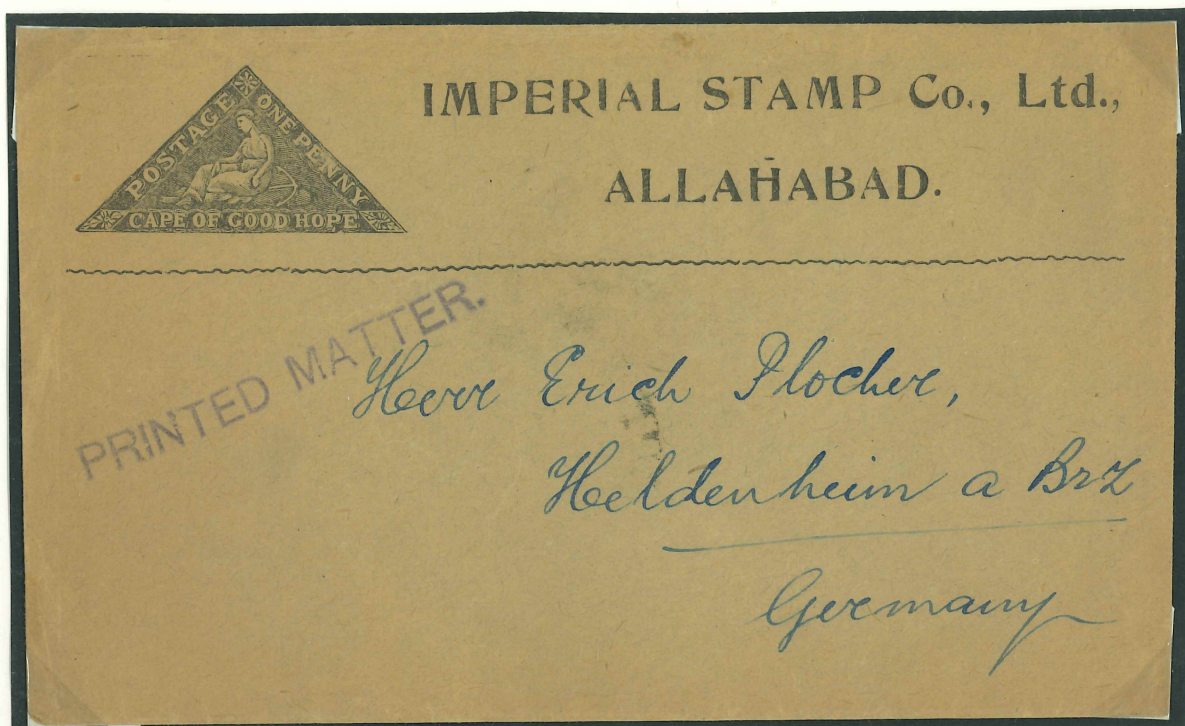 POSTAGE ONE PENNY
CAPE OF GOOD HOPE
IMPERIAL STAMP Co., Ltd.,
ALLAHABAD.
PRINTED MATTER.
Herr Erich Plocher,
Heldenheim a Brz
Germany